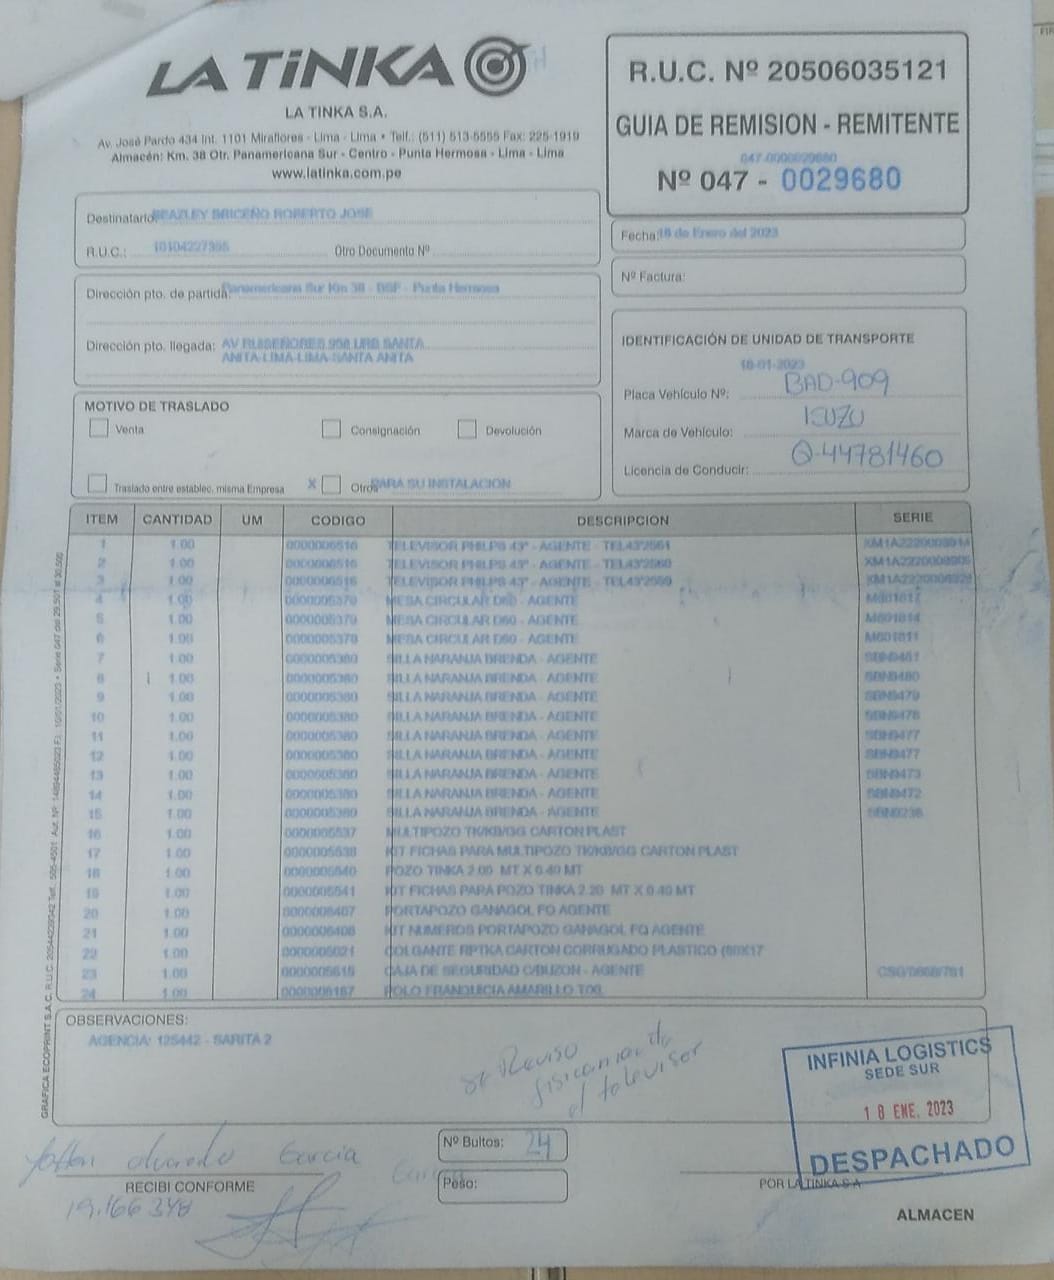 LA TiNKA
LA TINKA S.A.
Av. José Pardo 434 Int. 1101 Miraflores - Lima - Lima • Telf.: (511) 513-5555 Fax: 225-1919
Almacén: Km. 38 Otr. Panamericana Sur - Centro - Punta Hermosa - Lima - Lima
www.latinka.com.pe
R.U.C. Nº 20506035121
GUIA DE REMISION - REMITENTE
047-0000029680
Nº 047 - 0029680
Destinatario: BEAZLEY BRICEÑO ROBERTO JOSE
R.U.C.: Otro Documento Nº
Fecha: 18 de Enero del 2023
Nº Factura:
Dirección pto. de partida: Panamericana Sur Km 38 - BSF - Punta Hermosa
Dirección pto. llegada: AV RUISEÑORES 958 URB SANTA
ANITA-LIMA-LIMA-SANTA ANITA
IDENTIFICACIÓN DE UNIDAD DE TRANSPORTE
18-01-2023
Placa Vehículo Nº: BAD-909
Marca de Vehículo: ISUZU
Licencia de Conducir: Q-44781460
MOTIVO DE TRASLADO
Venta Consignación Devolución
Traslado entre establec. misma Empresa X Otros PARA SU INSTALACION
ITEM CANTIDAD UM CODIGO DESCRIPCION SERIE
1 1.00 0000006516 TELEVISOR PHILPS 43" - AGENTE
2 1.00 0000006516 TELEVISOR PHILPS 43" - AGENTE
3 1.00 0000006516 TELEVISOR PHILPS 43" - AGENTE
4 1.00 0000005379 MESA CIRCULAR D60 - AGENTE
5 1.00 0000005379 MESA CIRCULAR D60 - AGENTE M601814
6 1.00 0000005379 MESA CIRCULAR D60 - AGENTE M601811
7 1.00 0000005380 SILLA NARANJA BRENDA - AGENTE SBN9481
8 1.00 0000005380 SILLA NARANJA BRENDA - AGENTE SBN9480
9 1.00 0000005380 SILLA NARANJA BRENDA - AGENTE SBN9479
10 1.00 0000005380 SILLA NARANJA BRENDA - AGENTE SBN9478
11 1.00 0000005380 SILLA NARANJA BRENDA - AGENTE SBN9477
12 1.00 0000005380 SILLA NARANJA BRENDA - AGENTE SBN9477
13 1.00 0000005380 SILLA NARANJA BRENDA - AGENTE SBN9473
14 1.00 0000005380 SILLA NARANJA BRENDA - AGENTE SBN9472
15 1.00 0000005380 SILLA NARANJA BRENDA - AGENTE
16 1.00 0000005537 MULTIPOZO TK/KB/GG CARTON PLAST
17 1.00 0000005538 KIT FICHAS PARA MULTIPOZO TK/KB/GG CARTON PLAST
18 1.00 0000005540 POZO TINKA 2.00 MT X 0.40 MT
19 1.00 0000005541 KIT FICHAS PARA POZO TINKA 2.20 MT X 0.40 MT
20 1.00 PORTAPOZO GANAGOL FQ AGENTE
21 1.00 KIT NUMEROS PORTAPOZO GANAGOL FQ AGENTE
22 1.00 COLGANTE RPTKA CARTON CORRUGADO PLASTICO
23 1.00 CAJA DE SEGURIDAD C/BUZON - AGENTE
24 1.00 POLO FRANQUICIA AMARILLO
GRAFICA ECOPRINT S.A.C.
OBSERVACIONES:
AGENCIA: 125442 - SARITA 2
se Reviso
fisicamente
el televisor
INFINIA LOGISTICS
SEDE SUR
18 ENE. 2023
DESPACHADO
Garcia
RECIBI CONFORME
19.166 348
Nº Bultos: 24
Peso:
POR LA TINKA S.A.
ALMACEN